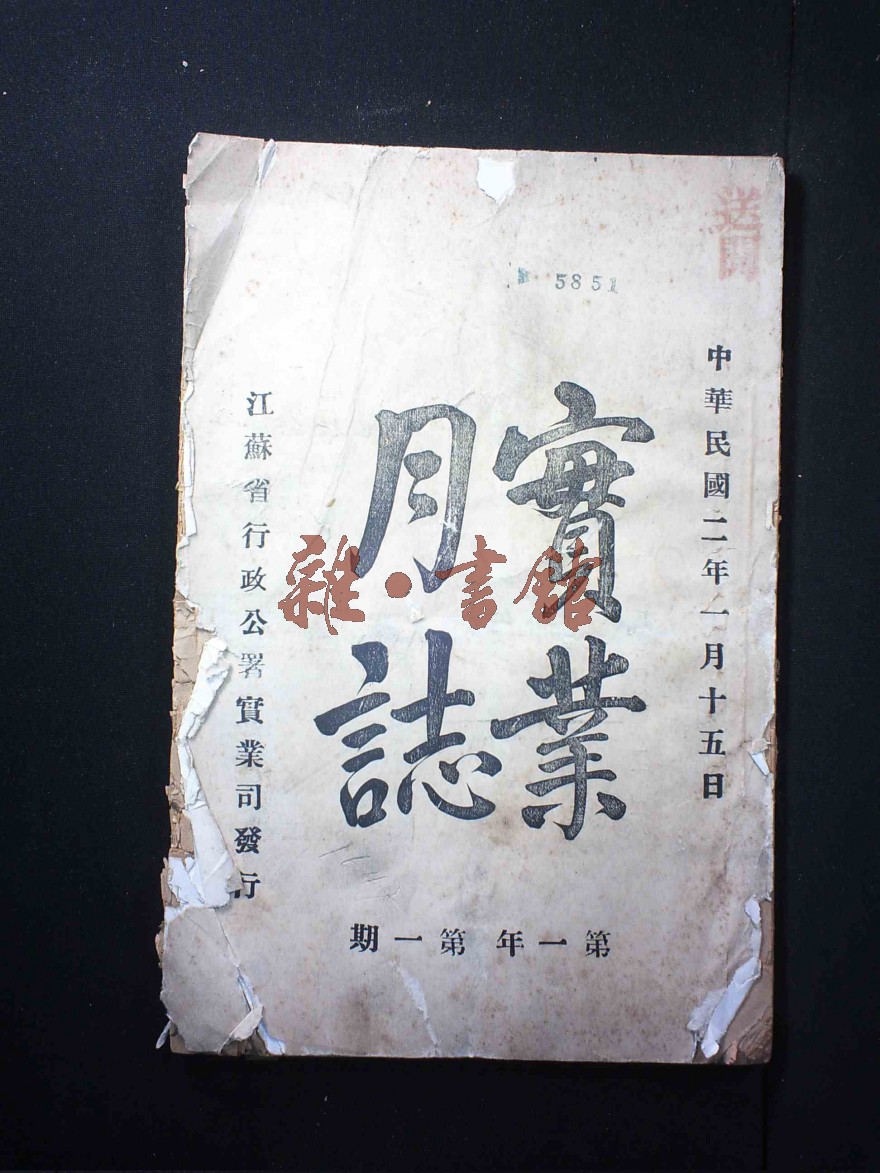 送閱
5851
中華民國二年一月十五日
實業
月誌
江蘇省行政公署實業司發行
第一年 第一期
雜·書館